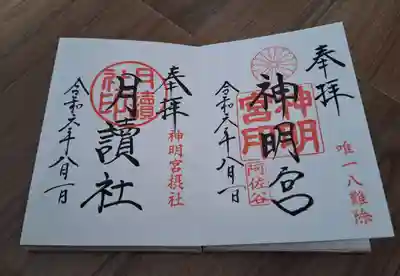 奉拝
唯一八難除
神明宮
神明
宮印
阿佐谷
令和元年八月一日
奉拝
神明宮摂社
月讀社
月讀
社印
令和元年八月一日